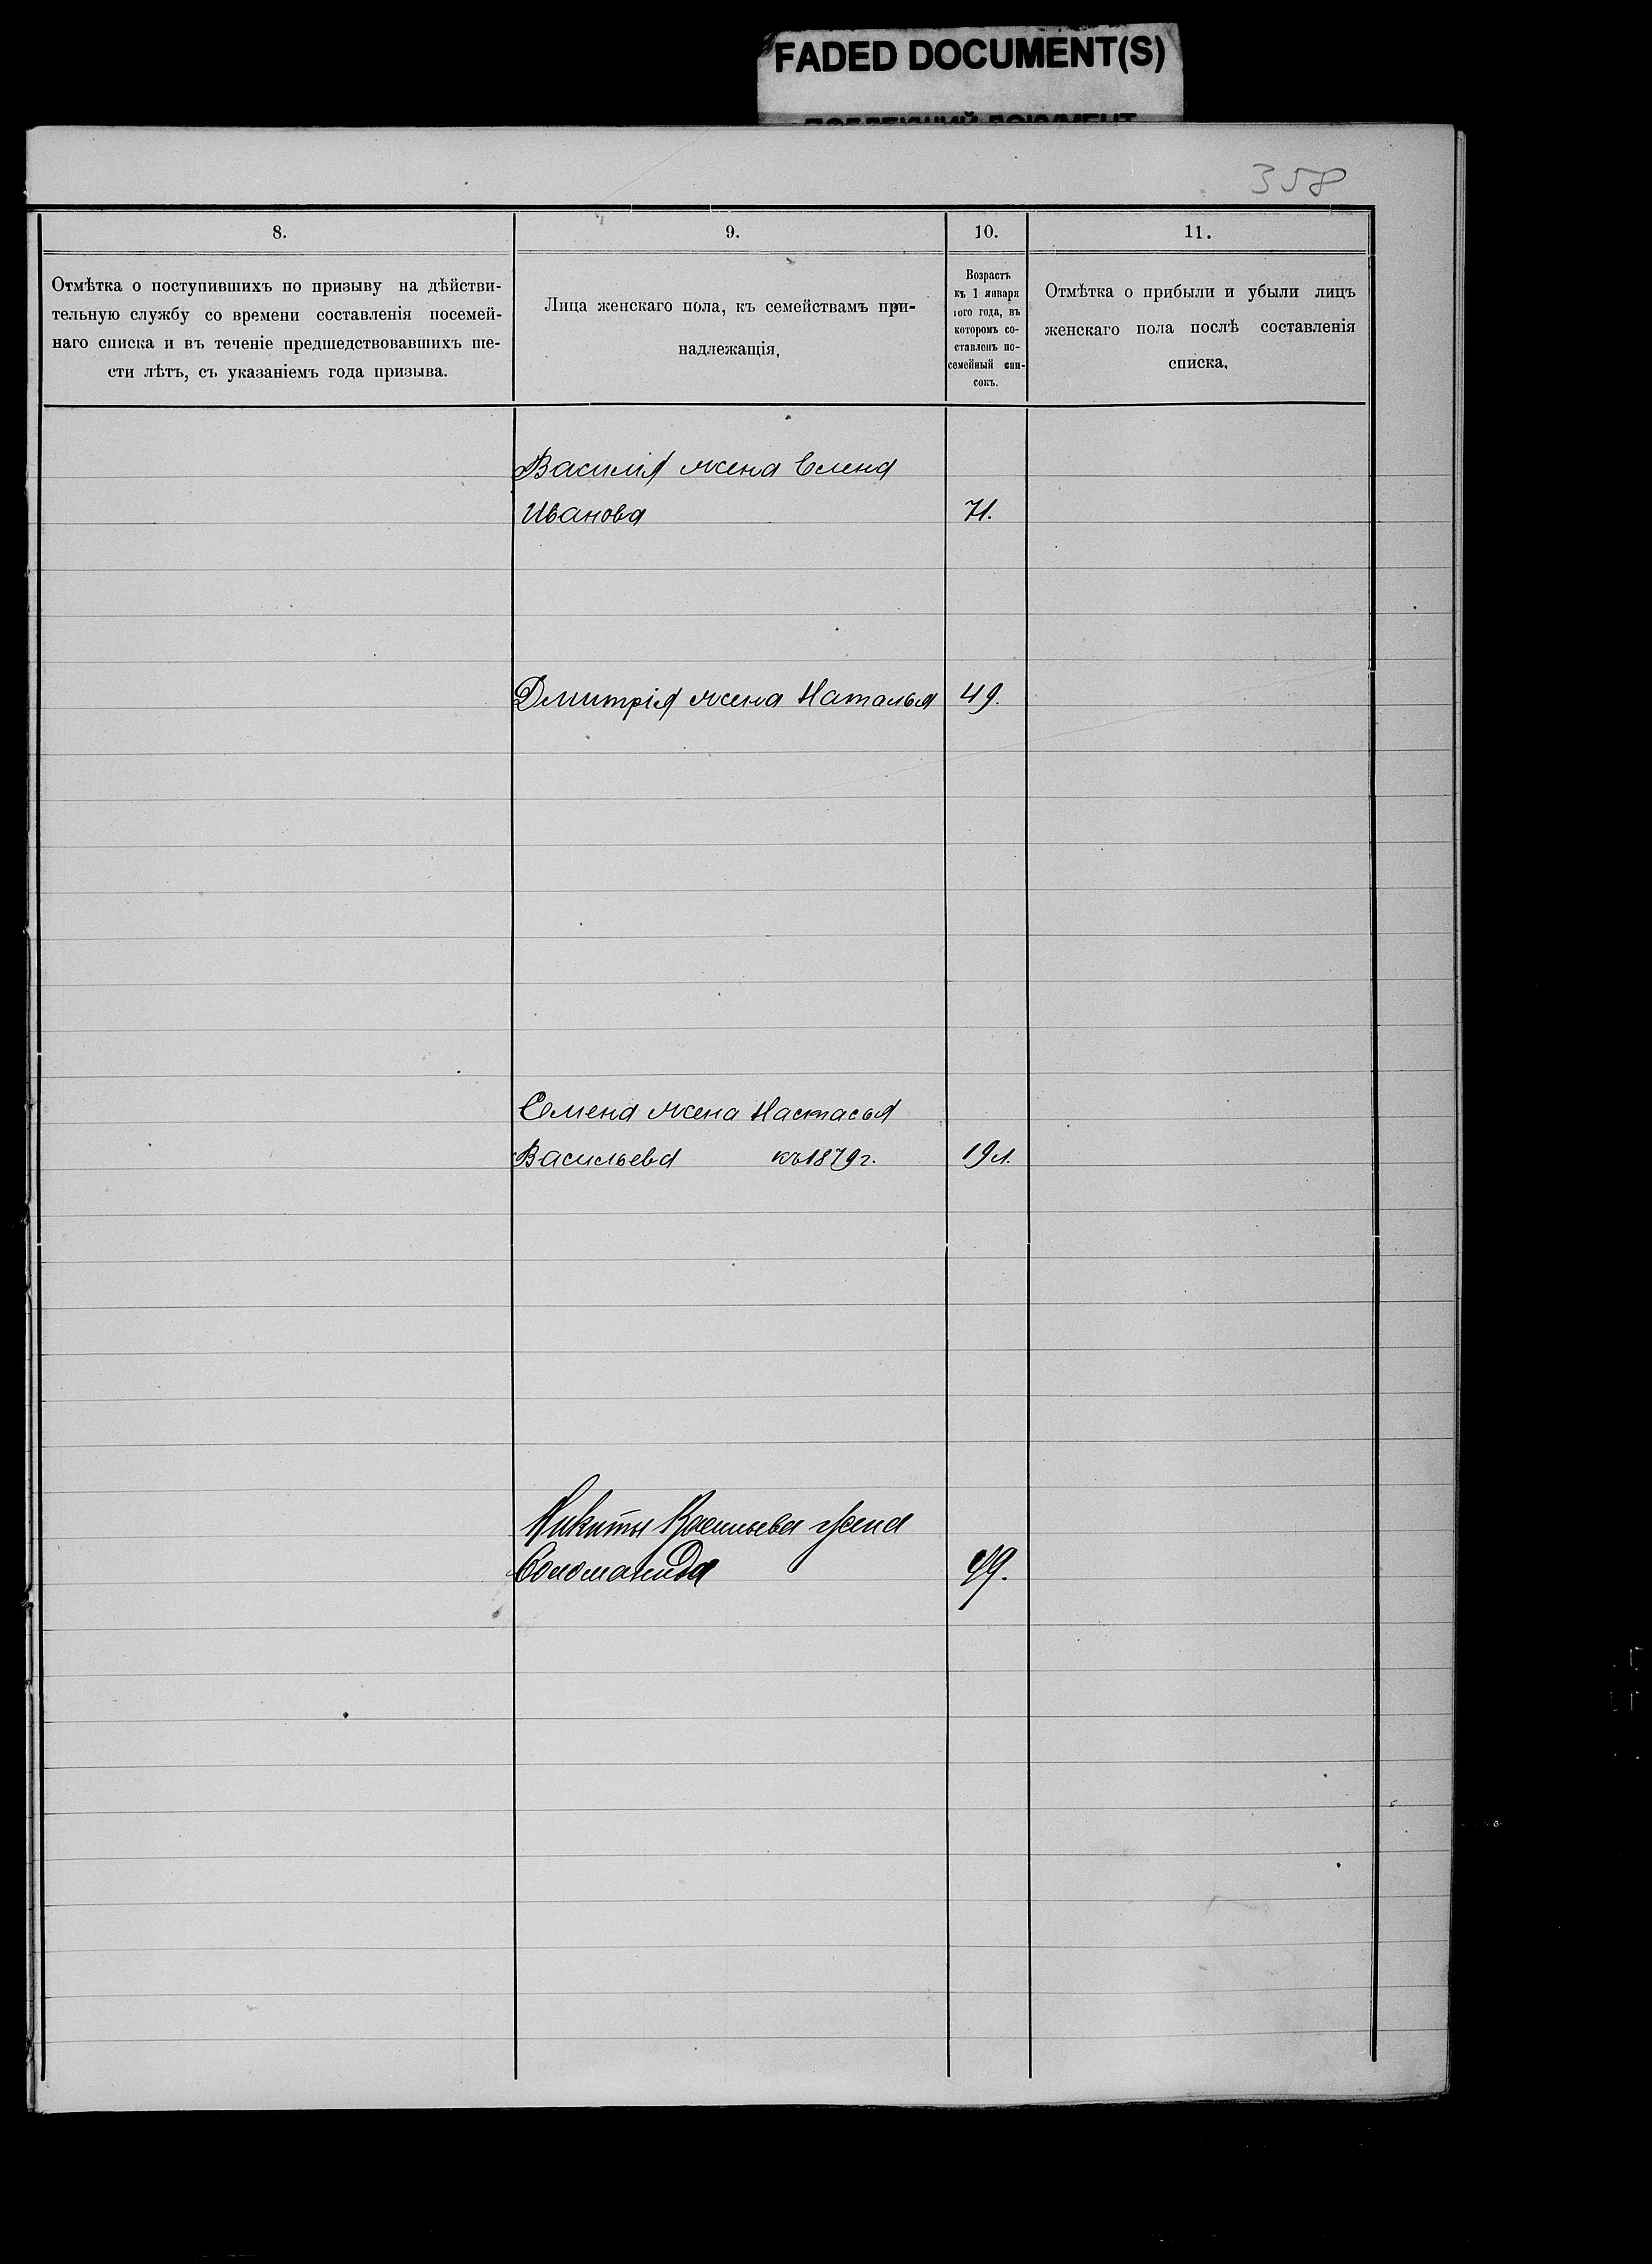 FADED DOCUMENT(S)
358
8.
9.
10.
11.
Отмѣтка о поступившихъ по призыву на дѣйстви-
тельную службу со времени составленія посемей-
наго списка и въ теченіе предшедствовавшихъ ше-
сти лѣтъ, съ указаніемъ года призыва.
Лица женскаго пола, къ семействамъ при-
надлежащія,
Возрастъ
къ 1 января
того года, въ
которомъ со-
ставленъ по-
семейный спи-
сокъ.
Отмѣтка о прибыли и убыли лицъ
женскаго пола послѣ составленія
списка,
Василія жена Елена
Иванова 71.
Дмитрія жена Наталья 49.
Семена жена Настасья
Васильева къ 1879 г. 19 л.
Никиты Васильева жена
Соломанида 49.